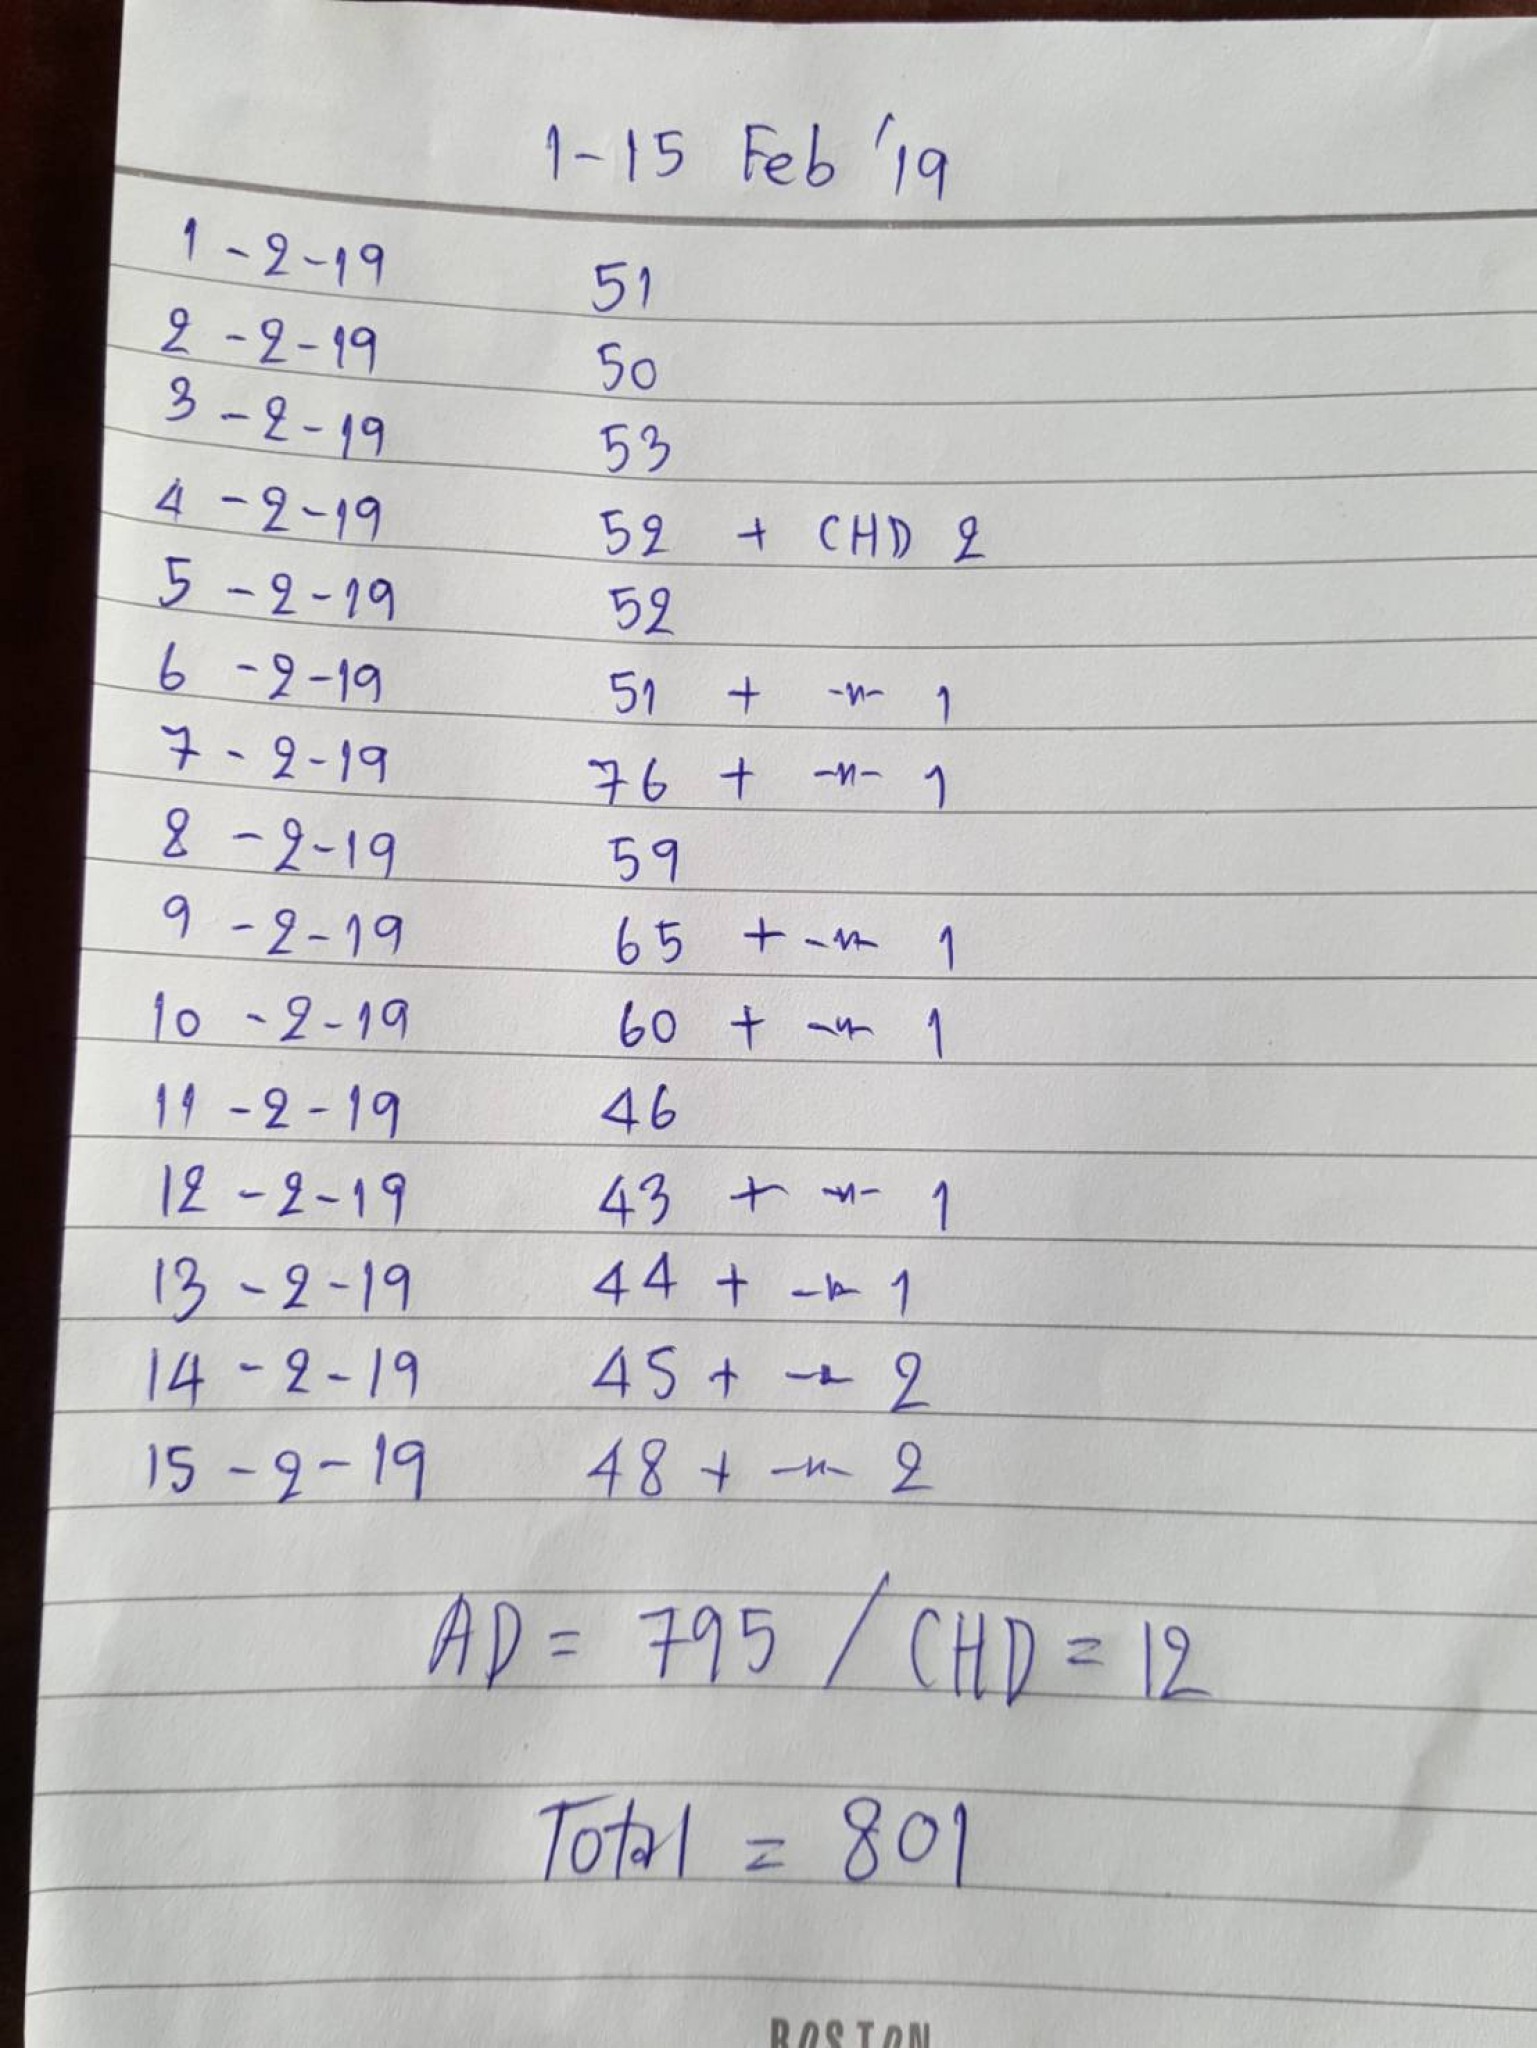 1-15 Feb '19
1-2-19 51
2-2-19 50
3-2-19 53
4-2-19 52 + CHD 2
5-2-19 52
6-2-19 51 + -〃- 1
7-2-19 76 + -〃- 1
8-2-19 59
9-2-19 65 + -〃- 1
10-2-19 60 + -〃- 1
11-2-19 46
12-2-19 43 + -〃- 1
13-2-19 44 + -〃- 1
14-2-19 45 + -〃- 2
15-2-19 48 + -〃- 2
AD = 795 / CHD = 12
Total = 801
BOSTON